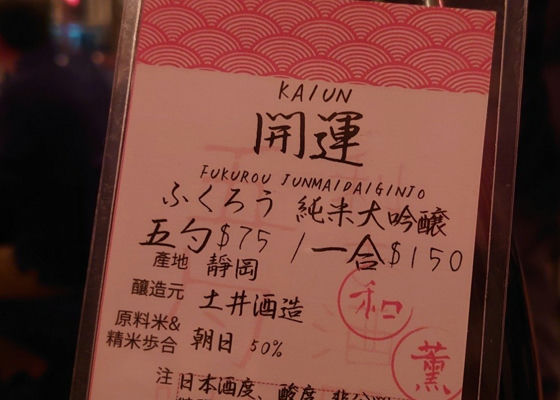 KAIUN
開運
FUKUROU JUNMAIDAIGINJO
ふくろう 純米大吟醸
五勺$75 /一合$150
產地 靜岡
釀造元 土井酒造
和
原料米&
精米步合 朝日 50%
薫
注 日本酒度、酸度